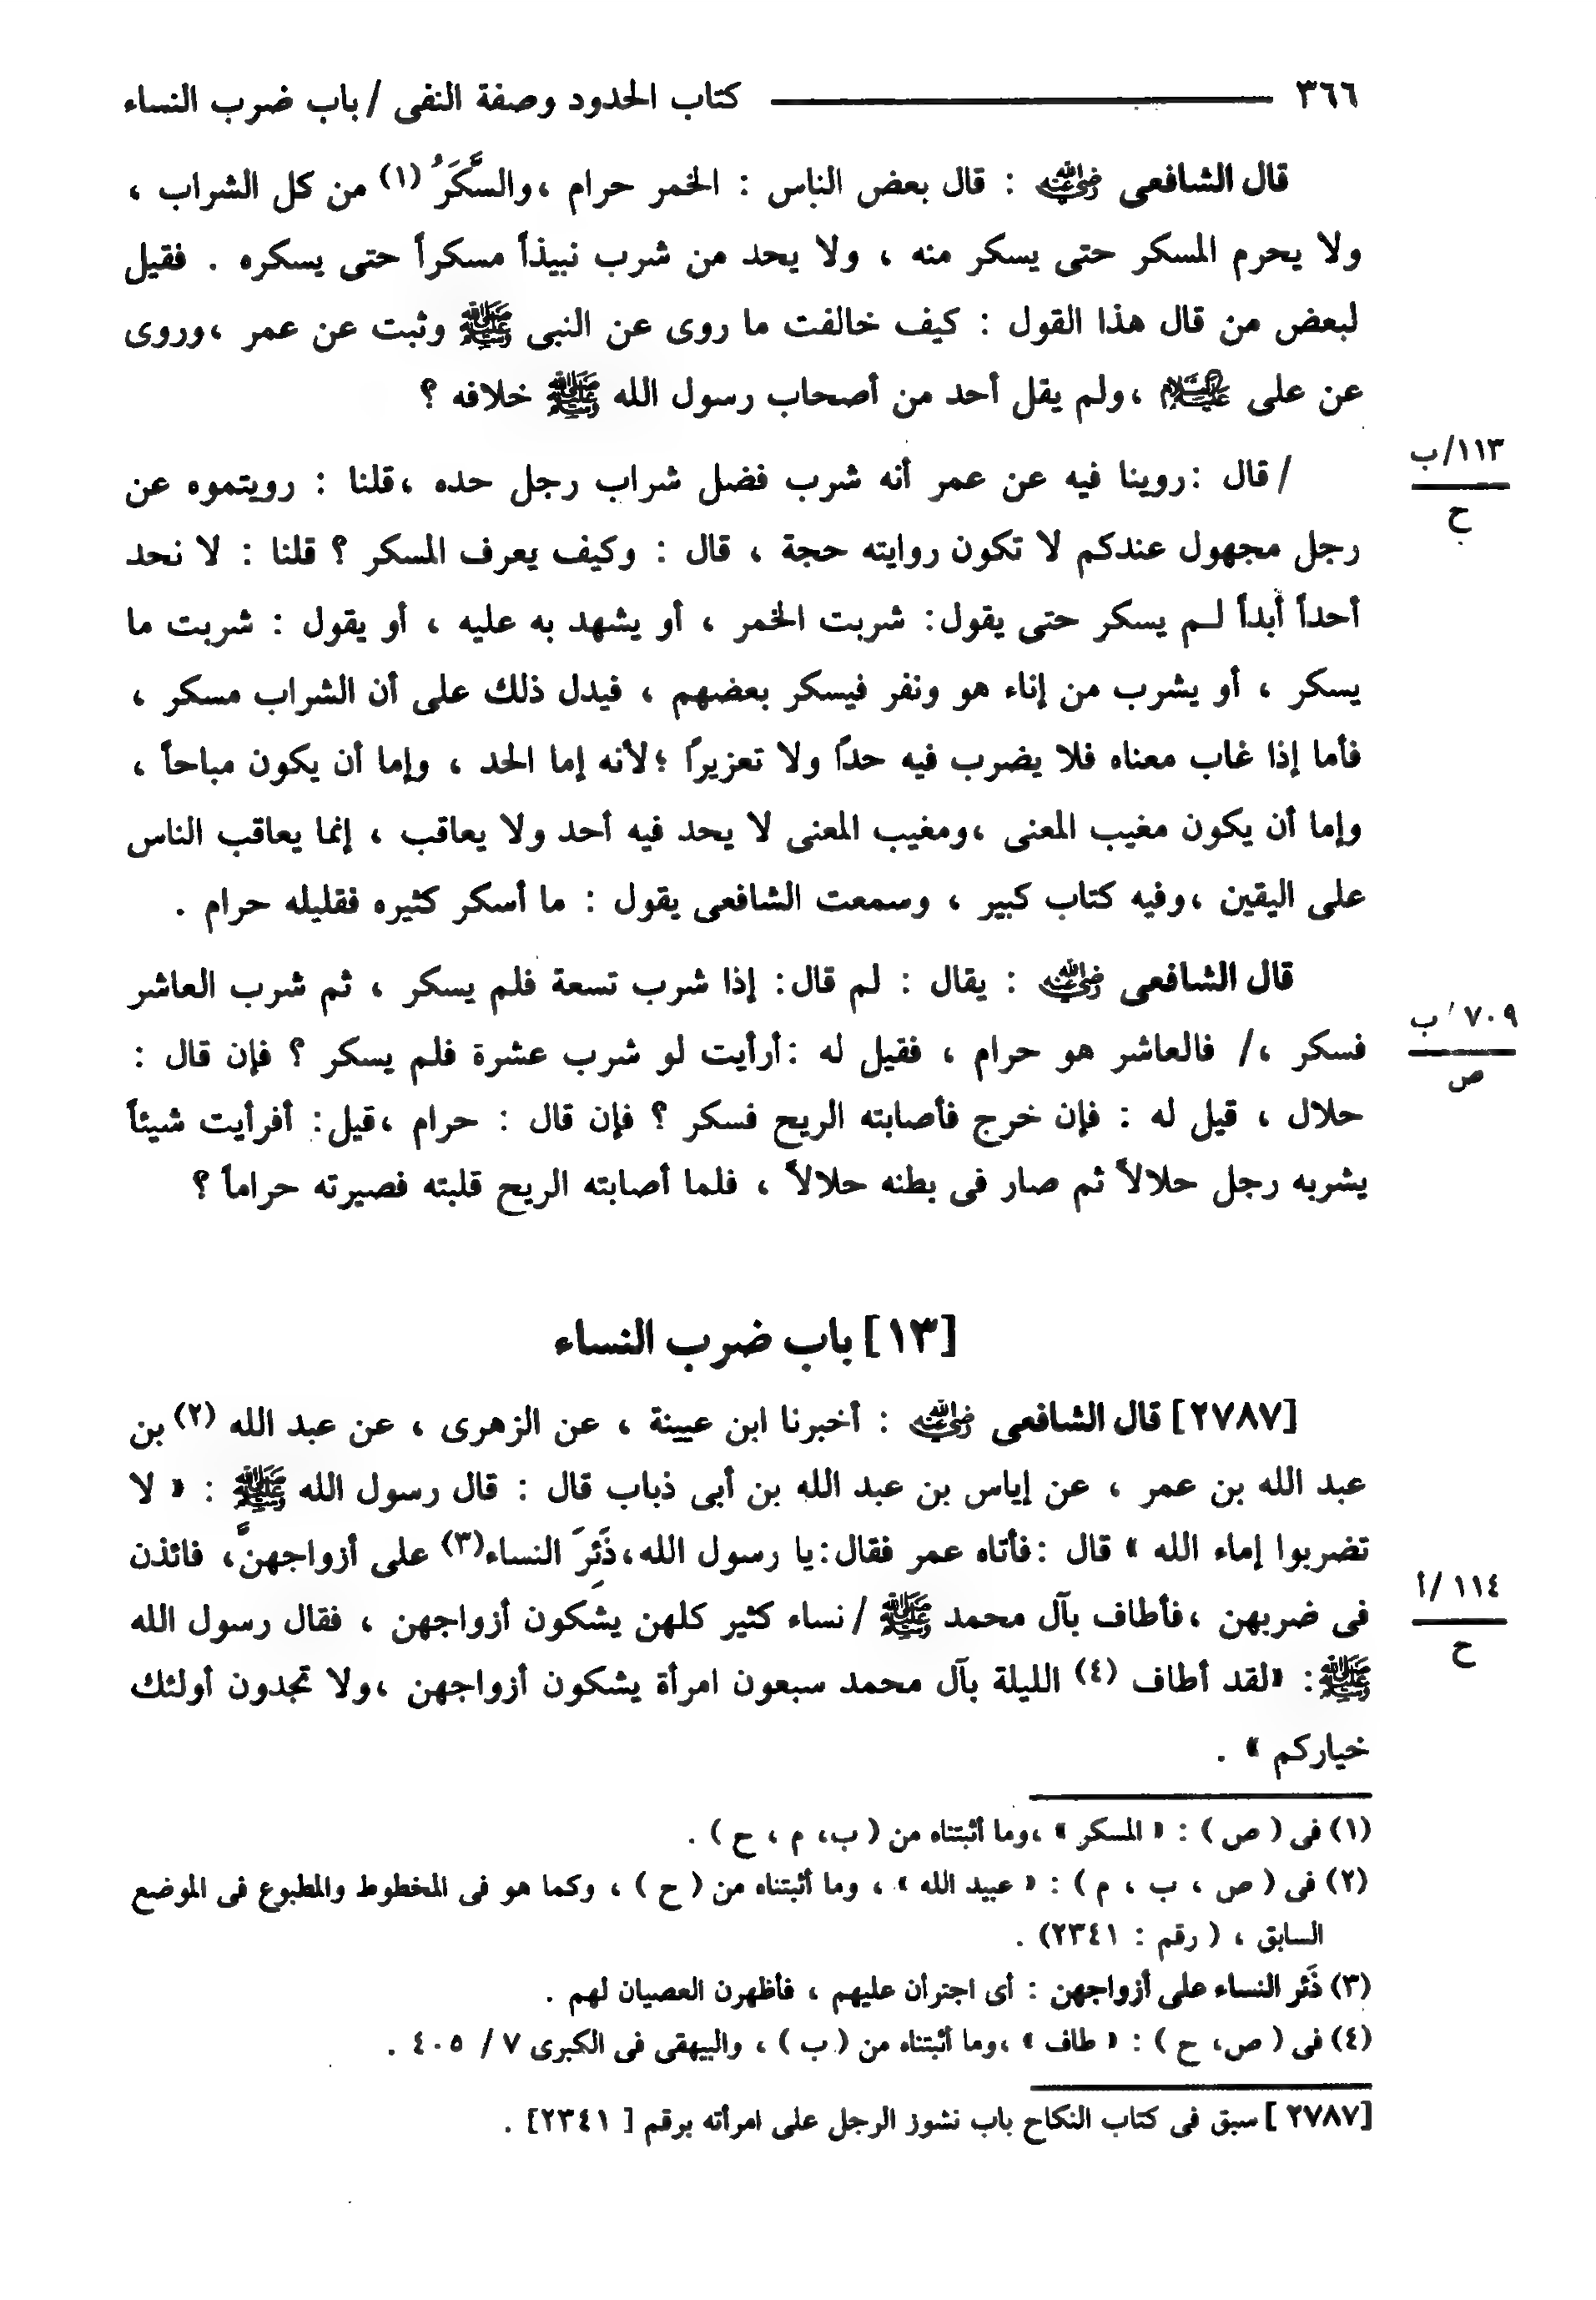 ٣٦٦ كتاب الحدود وصفة النفى / باب ضرب النساء
قال الشافعى رضي الله عنه : قال بعض الناس : الخمر حرام ،والسَّكَرُ (١) من كل الشراب ،
ولا يحرم المسكر حتى يسكر منه ، ولا يحد من شرب نبيذاً مسكراً حتى يسكره . فقيل
لبعض من قال هذا القول : كيف خالفت ما روى عن النبى ﷺ وثبت عن عمر ،وروى
عن على عليه السلام ،ولم يقل أحد من أصحاب رسول الله ﷺ خلافه ؟
١١٣/ب
ح
/ قال :روينا فيه عن عمر أنه شرب فضل شراب رجل حده ،قلنا : رويتموه عن
رجل مجهول عندكم لا تكون روايته حجة ، قال : وكيف يعرف المسكر ؟ قلنا : لا نحد
أحداً أبداً لـم يسكر حتى يقول: شربت الخمر ، أو يشهد به عليه ، أو يقول : شربت ما
يسكر ، أو يشرب من إناء هو ونفر فيسكر بعضهم ، فيدل ذلك على أن الشراب مسكر ،
فأما إذا غاب معناه فلا يضرب فيه حدًا ولا تعزيرًا ؛لأنه إما الحد ، وإما أن يكون مباحاً ،
وإما أن يكون مغيب المعنى ،ومغيب المعنى لا يحد فيه أحد ولا يعاقب ، إنما يعاقب الناس
على اليقين ،وفيه كتاب كبير ، وسمعت الشافعى يقول : ما أسكر كثيره فقليله حرام .
قال الشافعى رضي الله عنه : يقال : لم قال: إذا شرب تسعة فلم يسكر ، ثم شرب العاشر
٧٠٩/ب
ص
فسكر ،/ فالعاشر هو حرام ، فقيل له :أرأيت لو شرب عشرة فلم يسكر ؟ فإن قال :
حلال ، قيل له : فإن خرج فأصابته الريح فسكر ؟ فإن قال : حرام ،قيل: أفرأيت شيئاً
يشربه رجل حلالاً ثم صار فى بطنه حلالاً ، فلما أصابته الريح قلبته فصيرته حراماً ؟
[١٣] باب ضرب النساء
[٢٧٨٧] قال الشافعى رضي الله عنه : أخبرنا ابن عيينة ، عن الزهرى ، عن عبد الله (٢) بن
عبد الله بن عمر ، عن إياس بن عبد الله بن أبى ذباب قال : قال رسول الله ﷺ : « لا
تضربوا إماء الله » قال :فأتاه عمر فقال:يا رسول الله،ذَئِرَ النساء(٣) على أزواجهنَّ، فائذن
١١٤/أ
ح
فى ضربهن ،فأطاف بآل محمد ﷺ / نساء كثير كلهن يشكون أزواجهن ، فقال رسول الله
ﷺ: «لقد أطاف (٤) الليلة بآل محمد سبعون امرأة يشكون أزواجهن ،ولا تجدون أولئك
خياركم » .
(١) فى ( ص ) : « المسكر » ،وما أثبتناه من ( ب، م ، ح ) .
(٢) فى ( ص ، ب ، م ) : « عبيد الله » ، وما أثبتناه من ( ح ) ، وكما هو فى المخطوط والمطبوع فى الموضع
السابق ، ( رقم : ٢٣٤١) .
(٣) ذَئر النساء على أزواجهن : أى اجترأن عليهم ، فأظهرن العصيان لهم .
(٤) فى ( ص، ح ) : « طاف » ،وما أثبتناه من ( ب ) ، والبيهقى فى الكبرى ٧ / ٤٠٥ .
[٢٧٨٧ ] سبق فى كتاب النكاح باب نشوز الرجل على امرأته برقم [ ٢٣٤١] .